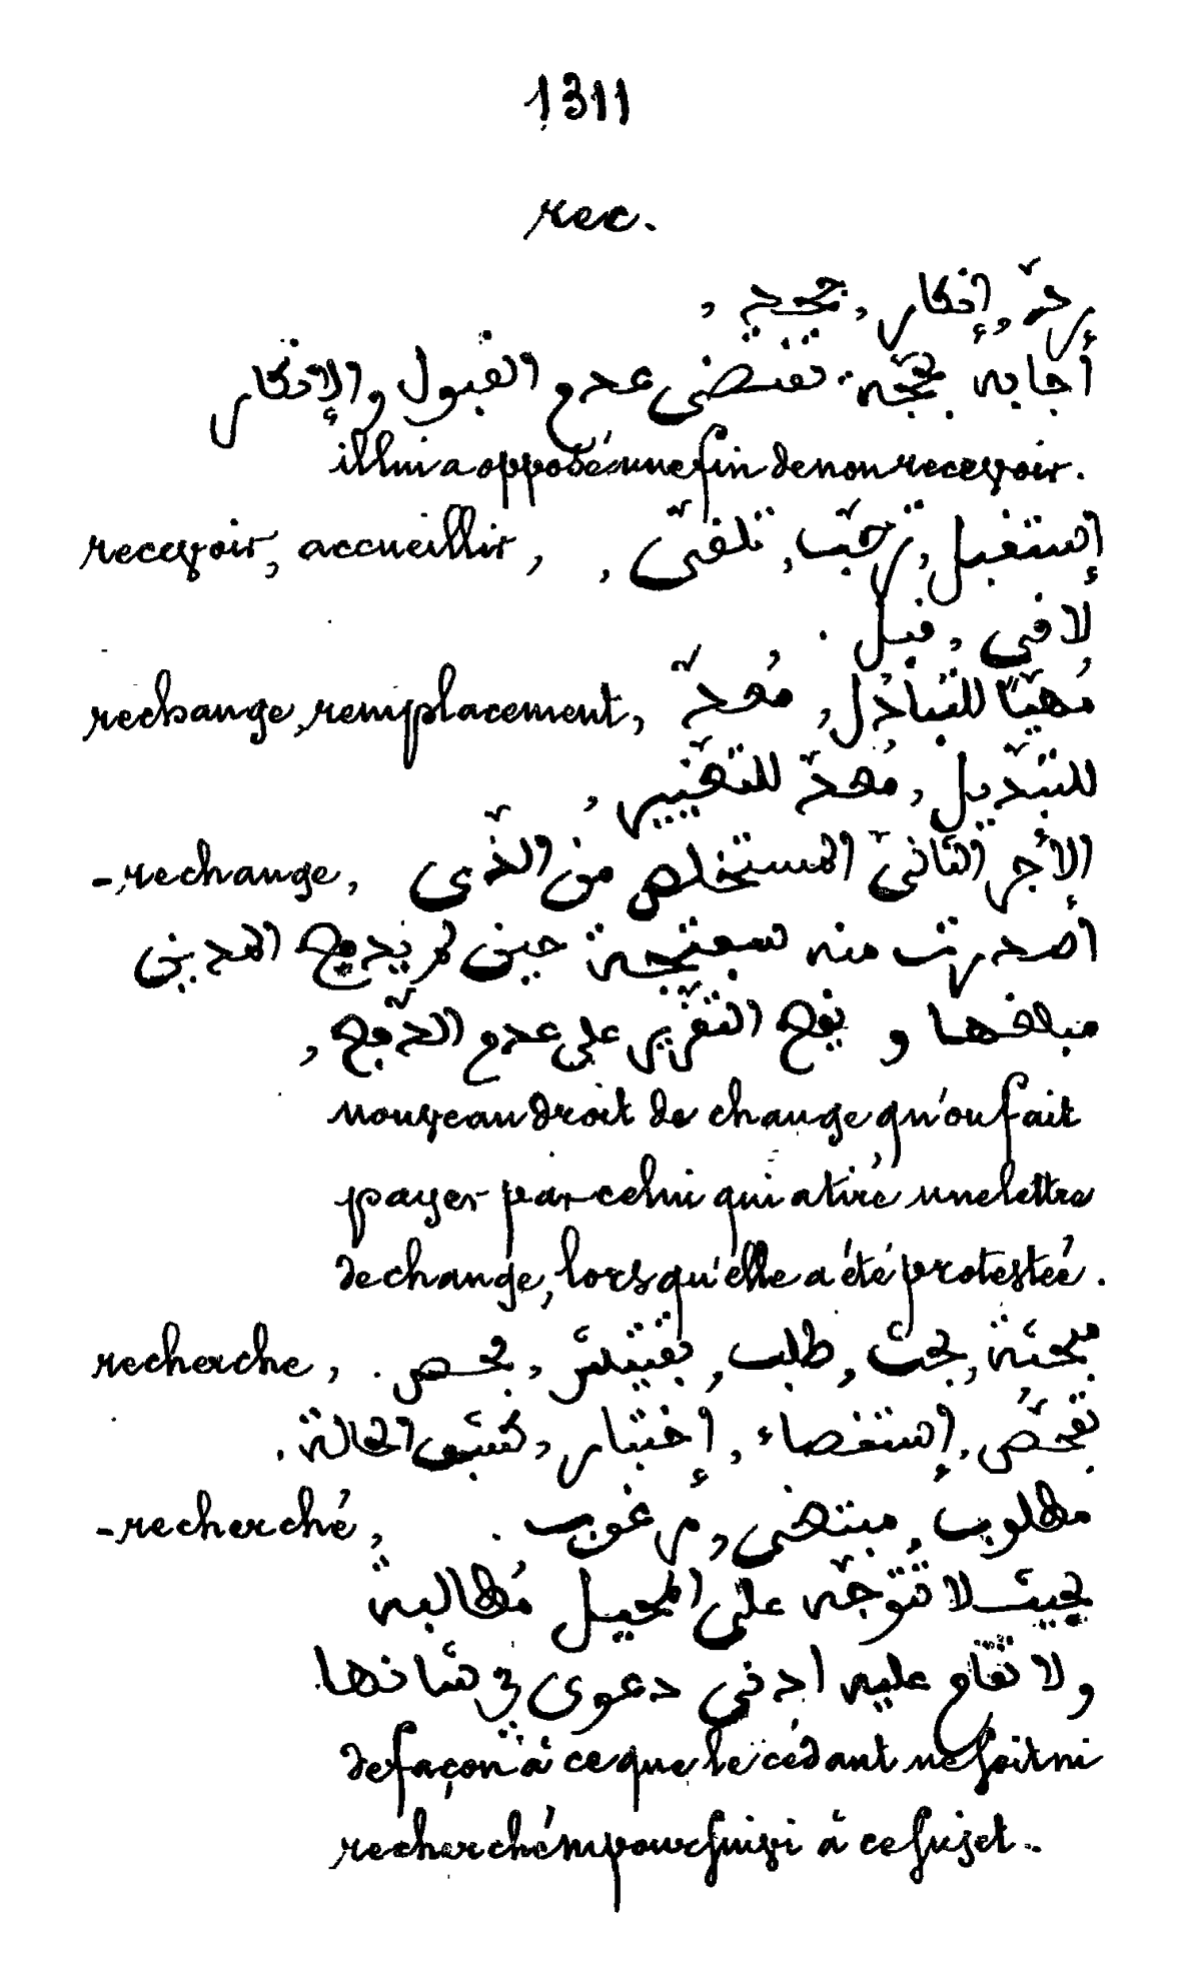 1311
rec.
ردّ, إنكار, جحود,
أجابه بحجّة تقتضى عدم القبول والإنكار
il lui a opposé une fin de non recevoir.
recevoir, accueillir, إستقبل, رحّب, تلقّى,
لاقى, قبل.
rechange, remplacement, مُهيّئا للتبادُل, مُعدّ
للتبديل, مُعدّ للتغيير,
-rechange, الأجر الثانىّ المستخلص من الذّى
اصدرت منه سفتجة حين لم يدفع المدين
مبلغها و يقع التقرير على عدم الدّفع,
nouveau droit de change qu'on fait
payer par celui qui a tiré une lettre
de change, lorsqu'elle a été protestée.
recherche, مبحثة, بحث, طلب, تفتيش, فحص.
تفحّص, إستقصاء, إختبار, كشف الحالة.
-recherché, مطلوب, مبتغى, مرغوب.
بحيث لا تتوجّه على المحيل مُطالبة
ولا تقام عليه ادنى دعوى فى شانها
de façon à ce que le cédant ne soit ni
recherché ni poursuivi à ce sujet.